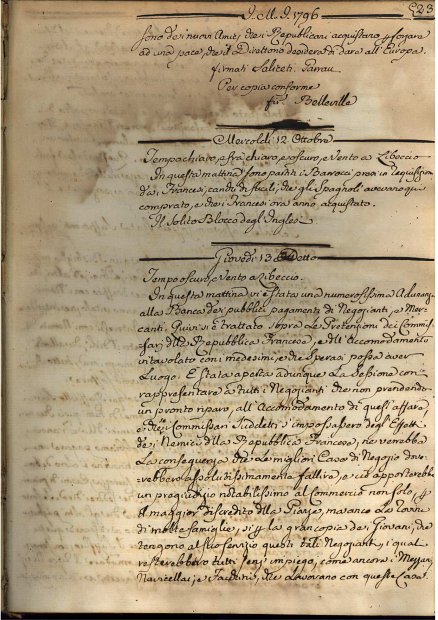 J. M. J. 1796
223
sono dei nuovi Amici, che i Republicani acquistano p forzare
ad una pace, che il Direttorio desidera di dare all'Europa.
firmati Saliceti. Garrau
Per copia conforme
fir. Belleville
Mercoldì 12 Ottobre
Tempo chiaro, e frà chiaro, e oscuro, e Vento a Libeccio
In questa mattina sono partiti i Barrocci presi in requisizione
dai Francesi, carichi di fucili, che gli Spagnoli avevano qui
comprato, e che i Francesi ora anno acquistato.
Il Solito Blocco degl'Inglesi
Giovedì 13 Detto
Tempo oscuro, e Vento a Libeccio.
In questa mattina vi è stata una numerosissima Adunanza
alla Banca dei pubblici pagamenti di Negozianti, e Mer-
canti. Quivi si è trattato sopra le Pretenzioni dei Commis-
sari della Repubblica Francese, e dell'Accomodamento
intavolato con i medesimi, e che sperasi possa aver
Luogo. È stata aperta adunque la Sessione con
rappresentare a tutti i Negozianti che non prendendo
un pronto riparo, all'Accomodamento di quest'affare,
e che i Commissari Suddetti s'impossassero degl'Effetti
dei Nemici della Repubblica Francese, ne verrebbe
La conseguenza che le migliori Case di Negozio dov-
rebbero assolutissimamente fallire, e ciò apporterebbe
un pregiudizio notabilissimo al Commercio non solo, p
il maggior discredito della Piazza, ma anco
di molte famiglie, sì p la gran copia dei Giovani, che
tengono al suo servizio questi tali Negozianti, i quali
resterebbero tutti senz'impiego, come ancora i Mezzani
Navicellai, e Facchini, che Lavorano con queste Case.